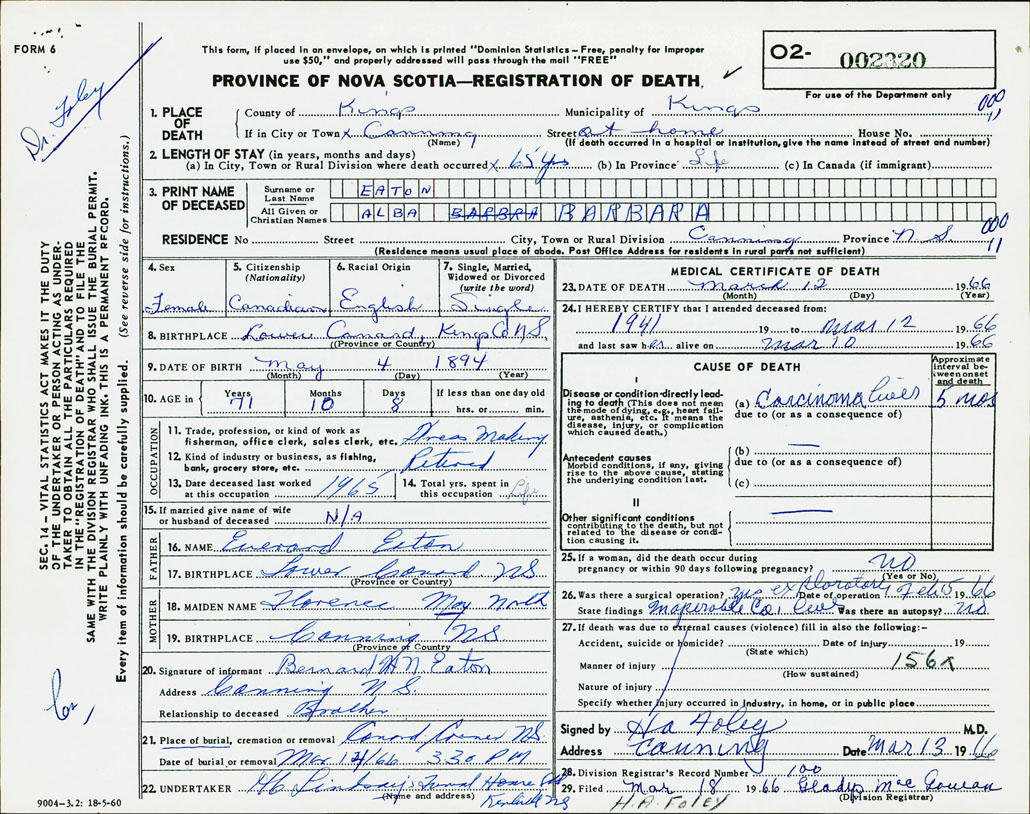 FORM 6
This form, if placed in an envelope, on which is printed "Dominion Statistics – Free, penalty for improper
use $50," and properly addressed will pass through the mail "FREE"
PROVINCE OF NOVA SCOTIA—REGISTRATION OF DEATH.
O2- 002320
For use of the Department only
Dr. Foley
SEC. 14 – VITAL STATISTICS ACT MAKES IT THE DUTY
OF THE UNDERTAKER OR PERSON ACTING AS UNDER-
TAKER TO OBTAIN ALL THE PARTICULARS REQUIRED
IN THE "REGISTRATION OF DEATH" AND TO FILE THE
SAME WITH THE DIVISION REGISTRAR WHO SHALL ISSUE THE BURIAL PERMIT.
WRITE PLAINLY WITH UNFADING INK. THIS IS A PERMANENT RECORD.
Every item of information should be carefully supplied. (See reverse side for instructions.)
1. PLACE OF DEATH
County of Kings Municipality of Kings 000 11
If in City or Town x Canning Street at home House No.
(Name) (If death occurred in a hospital or institution, give the name instead of street and number)
2. LENGTH OF STAY (in years, months and days)
(a) In City, Town or Rural Division where death occurred x 65 yrs (b) In Province Life (c) In Canada (if immigrant)
3. PRINT NAME OF DECEASED
Surname or Last Name EATON
All Given or Christian Names ALBA BARBRA BARBARA
RESIDENCE No Street City, Town or Rural Division Canning Province N.S. 000 11
(Residence means usual place of abode. Post Office Address for residents in rural parts not sufficient)
4. Sex Female
5. Citizenship (Nationality) Canadian
6. Racial Origin English
7. Single, Married, Widowed or Divorced (write the word) Single
8. BIRTHPLACE Lower Canard, Kings Co N.S.
(Province or Country)
9. DATE OF BIRTH May 4 1894
(Month) (Day) (Year)
10. AGE in Years 71 Months 10 Days 8 If less than one day old hrs. or min.
OCCUPATION
11. Trade, profession, or kind of work as
fisherman, office clerk, sales clerk, etc. Dress Making
12. Kind of industry or business, as fishing,
bank, grocery store, etc. Retired
13. Date deceased last worked
at this occupation 1965
14. Total yrs. spent in
this occupation Life
15. If married give name of wife
or husband of deceased N/A
FATHER
16. NAME Everard Eaton
17. BIRTHPLACE Lower Canard NS
(Province or Country)
MOTHER
18. MAIDEN NAME Florence May North
19. BIRTHPLACE Canning NS
(Province or Country)
20. Signature of informant Bernard H N. Eaton
Address Canning N S.
Relationship to deceased Brother
21. Place of burial, cremation or removal Canard Corner NS.
Date of burial or removal Mar. /66 3.30 PM
22. UNDERTAKER Lindsay's Funeral Home
(Name and address) Kentville NS
9004–3.2: 18-5-60
MEDICAL CERTIFICATE OF DEATH
23. DATE OF DEATH March 12 1966
(Month) (Day) (Year)
24. I HEREBY CERTIFY that I attended deceased from:
1941 19 to Mar 12 1966
and last saw her alive on Mar 10 1966
CAUSE OF DEATH
Approximate interval between onset and death
I
Disease or condition directly lead-
ing to death (This does not mean
the mode of dying, e.g., heart fail-
ure, asthenia, etc. It means the
disease, injury, or complication
which caused death.)
(a) Carcinoma liver 5 mos
due to (or as a consequence of)
Antecedent causes
Morbid conditions, if any, giving
rise to the above cause, stating
the underlying condition last.
(b)
due to (or as a consequence of)
(c)
II
Other significant conditions
contributing to the death, but not
related to the disease or condi-
tion causing it.
25. If a woman, did the death occur during
pregnancy or within 90 days following pregnancy? NO
(Yes or No)
26. Was there a surgical operation? yes exploratory Date of operation 1 Feb 1966
State findings inoperable Ca. liver Was there an autopsy? NO
27. If death was due to external causes (violence) fill in also the following:–
Accident, suicide or homicide? Date of injury 19
(State which)
Manner of injury 156x
(How sustained)
Nature of injury
Specify whether injury occurred in industry, in home, or in public place
Signed by HA Foley M.D.
Address Canning Date Mar 13 1966
28. Division Registrar's Record Number 100
29. Filed Mar 18 1966 Gladys McGowan
H.A. FOLEY (Division Registrar)